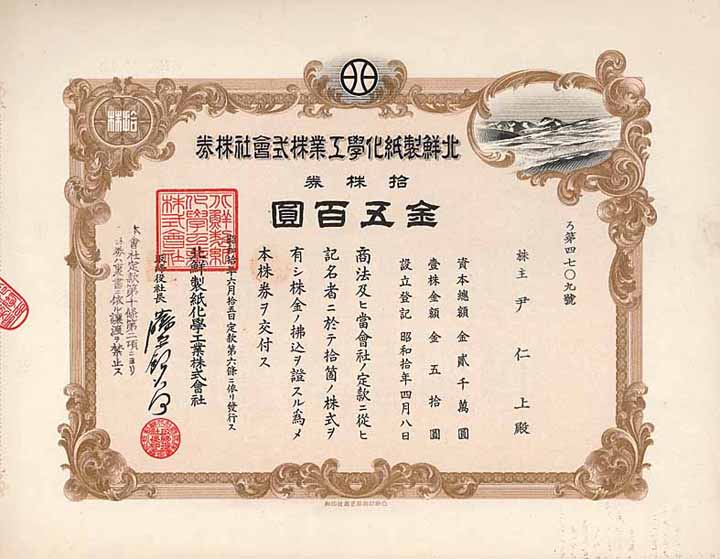 拾株
北鮮製紙化學工業株式會社株券
拾株券
金五百圓
ろ第四七〇九號
株主 尹仁上殿
資本總額 金貳千萬圓
壹株金額 金五拾圓
設立登記 昭和拾年四月八日
商法及ヒ當會社ノ定款ニ從ヒ
記名者ニ於テ拾箇ノ株式ヲ
有シ株金ノ拂込ヲ證スル爲メ
本株券ヲ交付ス
昭和拾年六月拾五日定款第六條ニ依リ發行ス
北鮮製紙化學工業株式會社
取締役社長
北鮮製紙化學工業株式會社
本會社定款第十條第二項ニヨリ